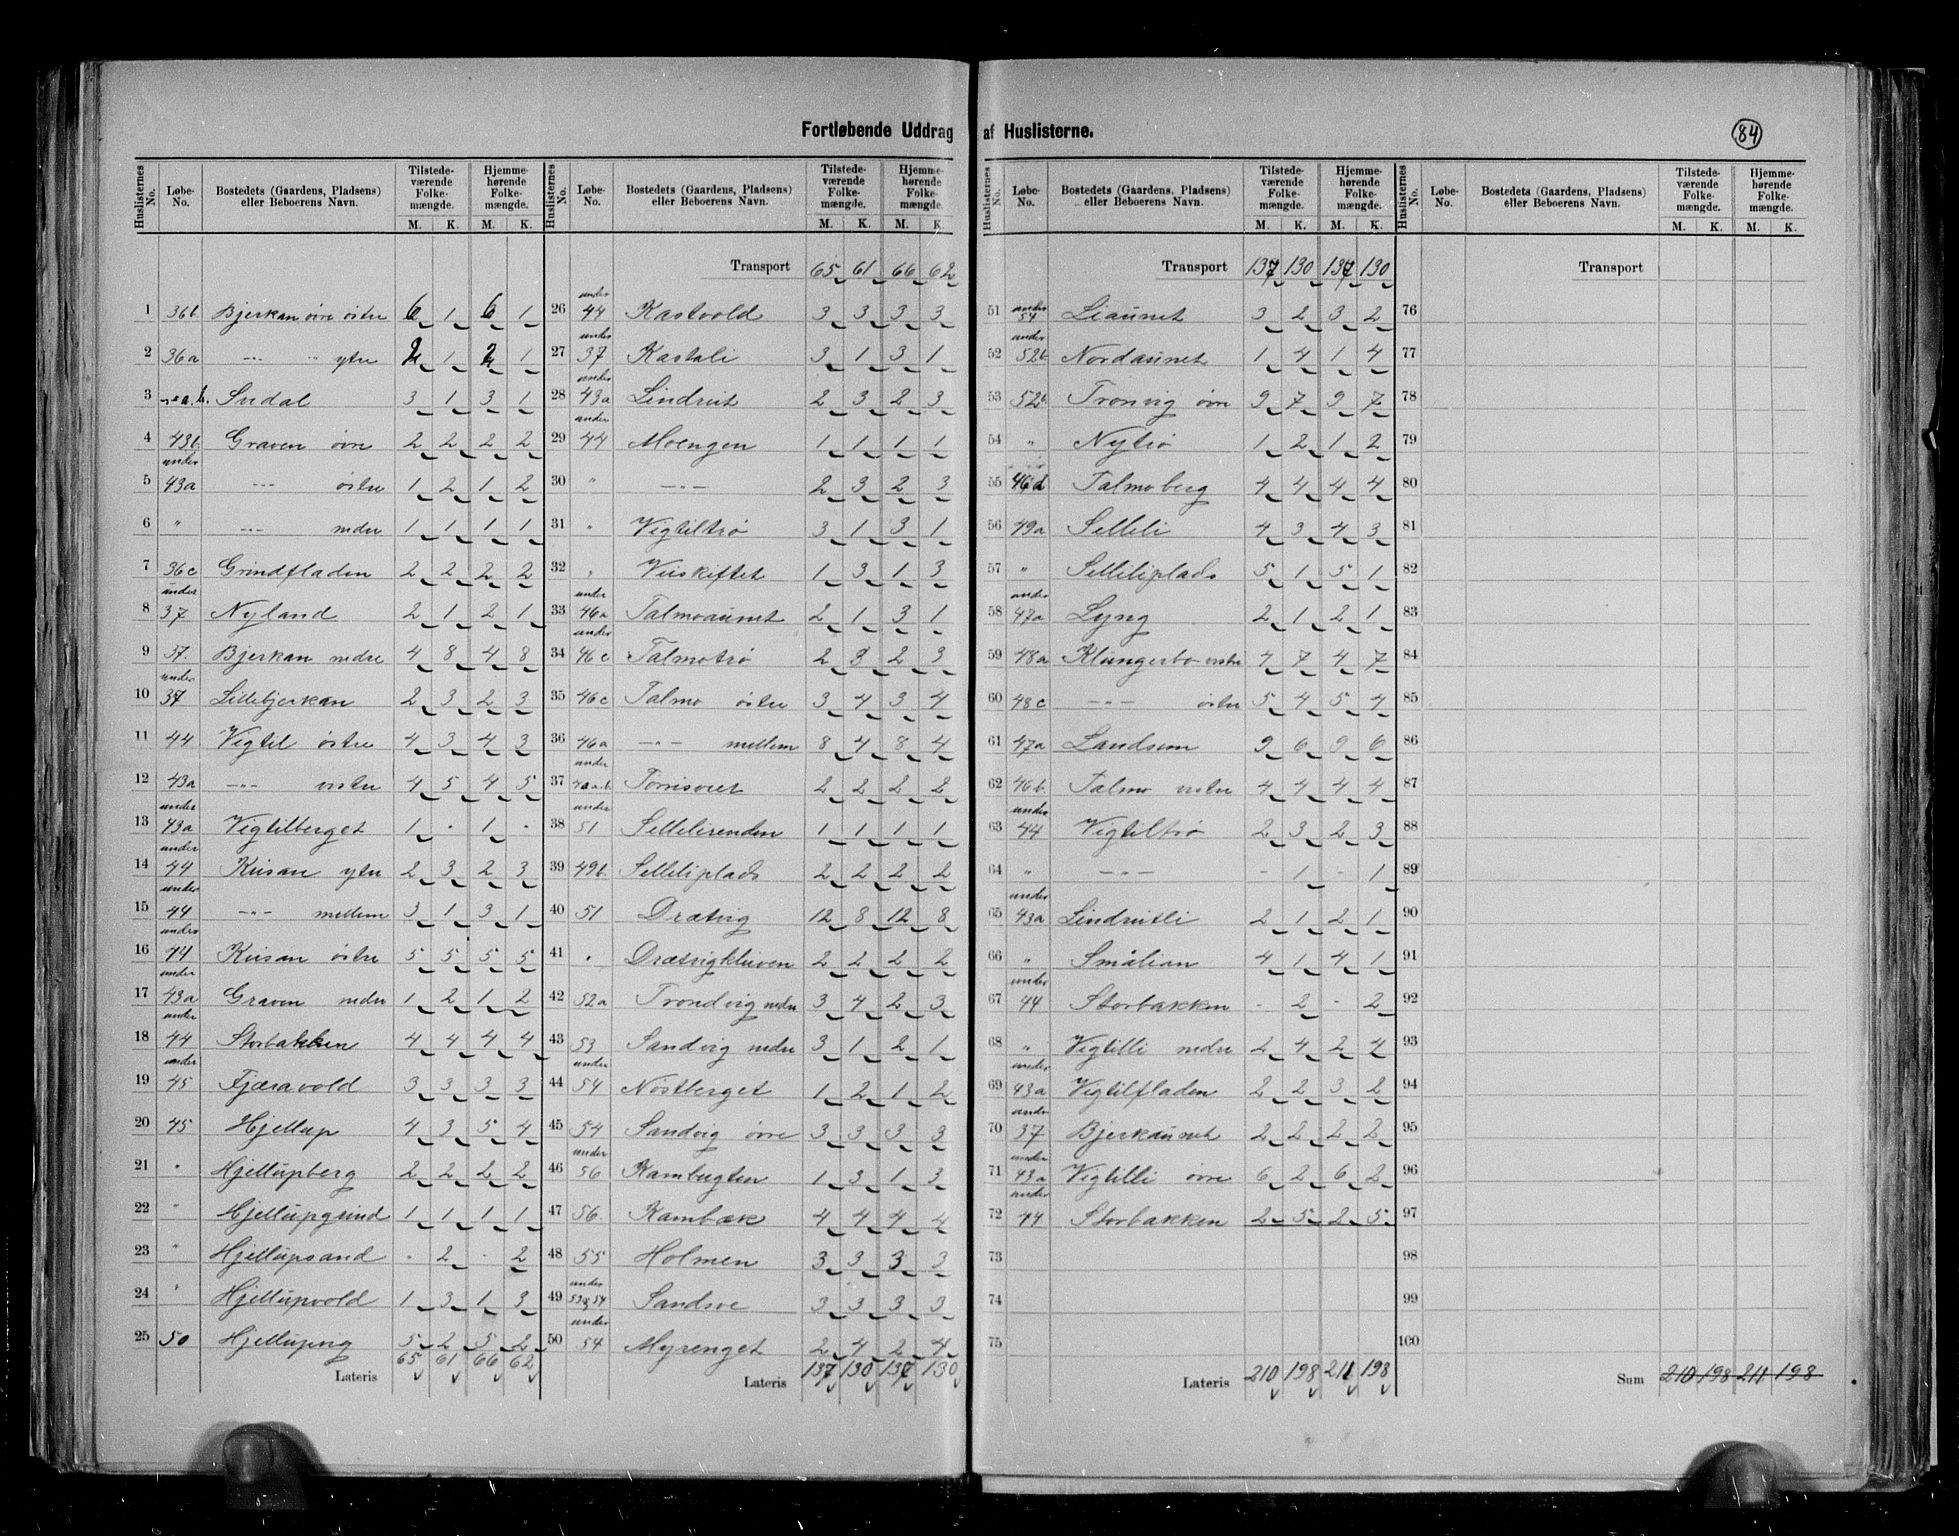 Fortløbende Uddrag af Huslisterne.
84
Huslisternes No. Løbe-No. Bostedets (Gaardens, Pladsens) eller Beboerens Navn. Tilstedeværende Folkemængde. M. K. Hjemmehørende Folkemængde. M. K.
1 36b. Bjerkan øvre østre 6 1 6 1
2 36a — „ ytre 2 1 2 1
3 Sudal 3 1 3 1
4 43b. Graven øvre 2 2 2 2
5 under 43a — østre 1 2 1 2
6 „ — nedre 1 1 1 1
7 36c Grindfladen 2 2 2 2
8 under 37 Nyland 2 1 2 1
9 37. Bjerkan nedre 4 8 4 8
10 under 37 Lillebjerkan 2 3 2 3
11 44 Vigtil østre 4 3 4 3
12 43a — vestre 4 5 4 5
13 under 43a Vigtilberget 1 - 1 -
14 under 44 Kusan ytre 2 3 2 3
15 under 44 — mellem 3 1 3 1
16 under 44 Kusan østre 5 5 5 5
17 under 43a Graven nedre 1 2 1 2
18 under 44 Storbakken 4 4 4 4
19 under 45 Fjæravold 3 3 3 3
20 45 Hjellup 4 3 5 4
21 „ Hjellupberg 2 2 2 2
22 „ Hjellupgrind 1 1 1 1
23 „ Hjellupsand - 2 - 2
24 „ Hjellupvold 1 3 1 3
25 50 Hjellupeng 5 2 5 2
Lateris 65 61 66 62
Huslisternes No. Løbe-No. Bostedets (Gaardens, Pladsens) eller Beboerens Navn. Tilstedeværende Folkemængde. M. K. Hjemmehørende Folkemængde. M. K.
Transport 65 61 66 62
26 under 44 Kastvold 3 3 3 3
27 under 37 Kastali 3 1 3 1
28 under 43a Lindseet 2 3 2 3
29 under 44 Moengen 1 1 1 1
30 „ — 2 3 2 3
31 „ Vigtiltrø 3 1 3 1
32 „ Viiskiftet 1 3 1 3
33 under 46a Talmoaunet 2 1 3 1
34 under 46c Talmotrø 2 3 2 3
35 46c Talmo østre 3 4 3 4
36 46a — mellem 8 4 8 4
37 under Torrisvoret 2 2 2 2
38 under 51 Sellelirenden 1 1 1 1
39 49b. Selleliplads 2 2 2 2
40 51 Drætvig 12 8 12 8
41 „ Drætvigkleiven 2 2 2 2
42 52a Trondvig nedre 3 4 2 3
43 53 Sandvig nedre 3 1 2 1
44 under 54 Nøstberget 1 2 1 2
45 54 Sandvig øvre 3 3 3 3
46 under 56 Kambugten 1 3 1 3
47 56. Kambæk 4 4 4 4
48 55 Holmen 3 3 3 3
49 under 53 & 54 Sandsøe 3 3 3 3
50 under 54 Myrenget 2 4 2 4
Lateris 137 130 137 130
Huslisternes No. Løbe-No. Bostedets (Gaardens, Pladsens) eller Beboerens Navn. Tilstedeværende Folkemængde. M. K. Hjemmehørende Folkemængde. M. K.
Transport 137 130 137 130
51 under 54 Liaunet 3 2 3 2
52 under 52b. Nordaunet 1 4 1 4
53 52b. Tronvig øvre 9 7 9 7
54 „ Nytrø 1 2 1 2
55 46d Talmoberg 4 4 4 4
56 49a Selleli 4 3 4 3
57 „ Selleliplads 5 1 5 1
58 under 47a Lyng 2 1 2 1
59 48a Klungerbo vestre 4 7 4 7
60 48c — østre 5 4 5 4
61 47a Landsem 9 6 9 6
62 46b. Talmo vestre 4 4 4 4
63 under 44 Vigtiltrø 2 3 2 3
64 „ — - 1 - 1
65 under 43a Lindseetli 2 1 2 1
66 „ Smålian 4 1 4 1
67 under 44 Storbakken - 2 - 2
68 „ Vigtilli nedre 2 4 2 4
69 under 43a Vigtilfladen 2 2 3 2
70 under 37 Bjerkaunet 2 2 2 2
71 under 43a Vigtilli øvre 6 2 6 2
72 under 44 Storbakken 2 5 2 5
73
74
75
Lateris 210 198 211 198
Huslisternes No. Løbe-No. Bostedets (Gaardens, Pladsens) eller Beboerens Navn. Tilstedeværende Folkemængde. M. K. Hjemmehørende Folkemængde. M. K.
Transport
76
77
78
79
80
81
82
83
84
85
86
87
88
89
90
91
92
93
94
95
96
97
98
99
100
Sum 210 198 211 198